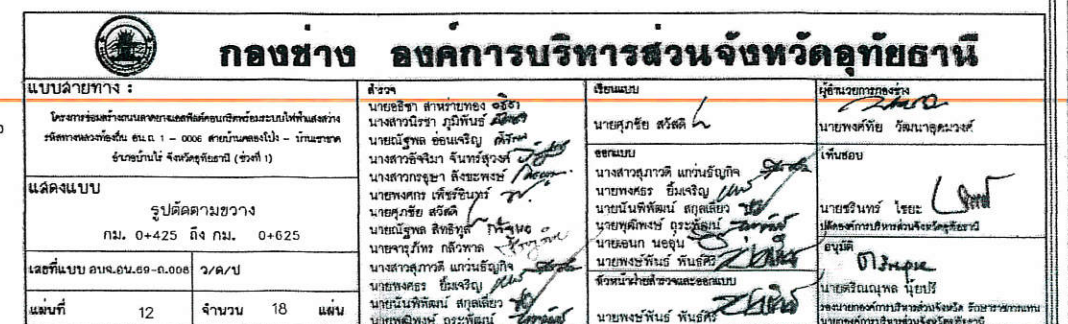 กองช่าง องค์การบริหารส่วนจังหวัดอุทัยธานี
แบบสายทาง :
โครงการซ่อมสร้างถนนลาดยางแอสฟัลต์คอนกรีตพร้อมระบบไฟฟ้าแสงสว่าง
รหัสทางหลวงท้องถิ่น อน.ถ. 1 - 0006 สายบ้านคลองโป่ง - บ้านเขาขาด
อำเภอบ้านไร่ จังหวัดอุทัยธานี (ช่วงที่ 1)
แสดงแบบ
รูปตัดตามขวาง
กม. 0+425 ถึง กม. 0+625
เลขที่แบบ อบจ.อน.69-ถ.008
ว/ด/ป
แผ่นที่ 12 จำนวน 18 แผ่น
สำรวจ
นายอธิชา สาหร่ายทอง
นางสาวนิรชา ภูมิพันธ์
นายณัฐพล อ่อนเจริญ
นางสาวอัจจิมา จันทร์สุวงศ์
นางสาวกรธุษา สังขะพงษ์
นายพงศกร เพ็ชร์อินทร์
นายศุภชัย สวัสดี
นายณัฐพล สิทธิทูล
นายจารุภัทร กลิ่วพาล
นางสาวสุภาวดี แกว่นธัญกิจ
นายพงศธร ยิ้มเจริญ
นายนันพิพัฒน์ สกุลเลี่ยว
นายพุฒิพงษ์ ถุระพัฒน์
เขียนแบบ
นายศุภชัย สวัสดี
ออกแบบ
นางสาวสุภาวดี แกว่นธัญกิจ
นายพงศธร ยิ้มเจริญ
นายนันพิพัฒน์ สกุลเลี่ยว
นายพุฒิพงษ์ ถุระพัฒน์
นายเอนก นออุ่น
นายพงษ์พันธ์ พันธ์ศิริ
หัวหน้าฝ่ายสำรวจและออกแบบ
นายพงษ์พันธ์ พันธ์ศิริ
ผู้อำนวยการกองช่าง
นายพงศ์ทัย วัฒนาอุดมวงศ์
เห็นชอบ
นายชรินทร์ ไชยะ
ปลัดองค์การบริหารส่วนจังหวัดอุทัยธานี
อนุมัติ
นายตริณณุพล นุ้ยปรี
รองนายกองค์การบริหารส่วนจังหวัด รักษาราชการแทน
นายกองค์การบริหารส่วนจังหวัดอุทัยธานี